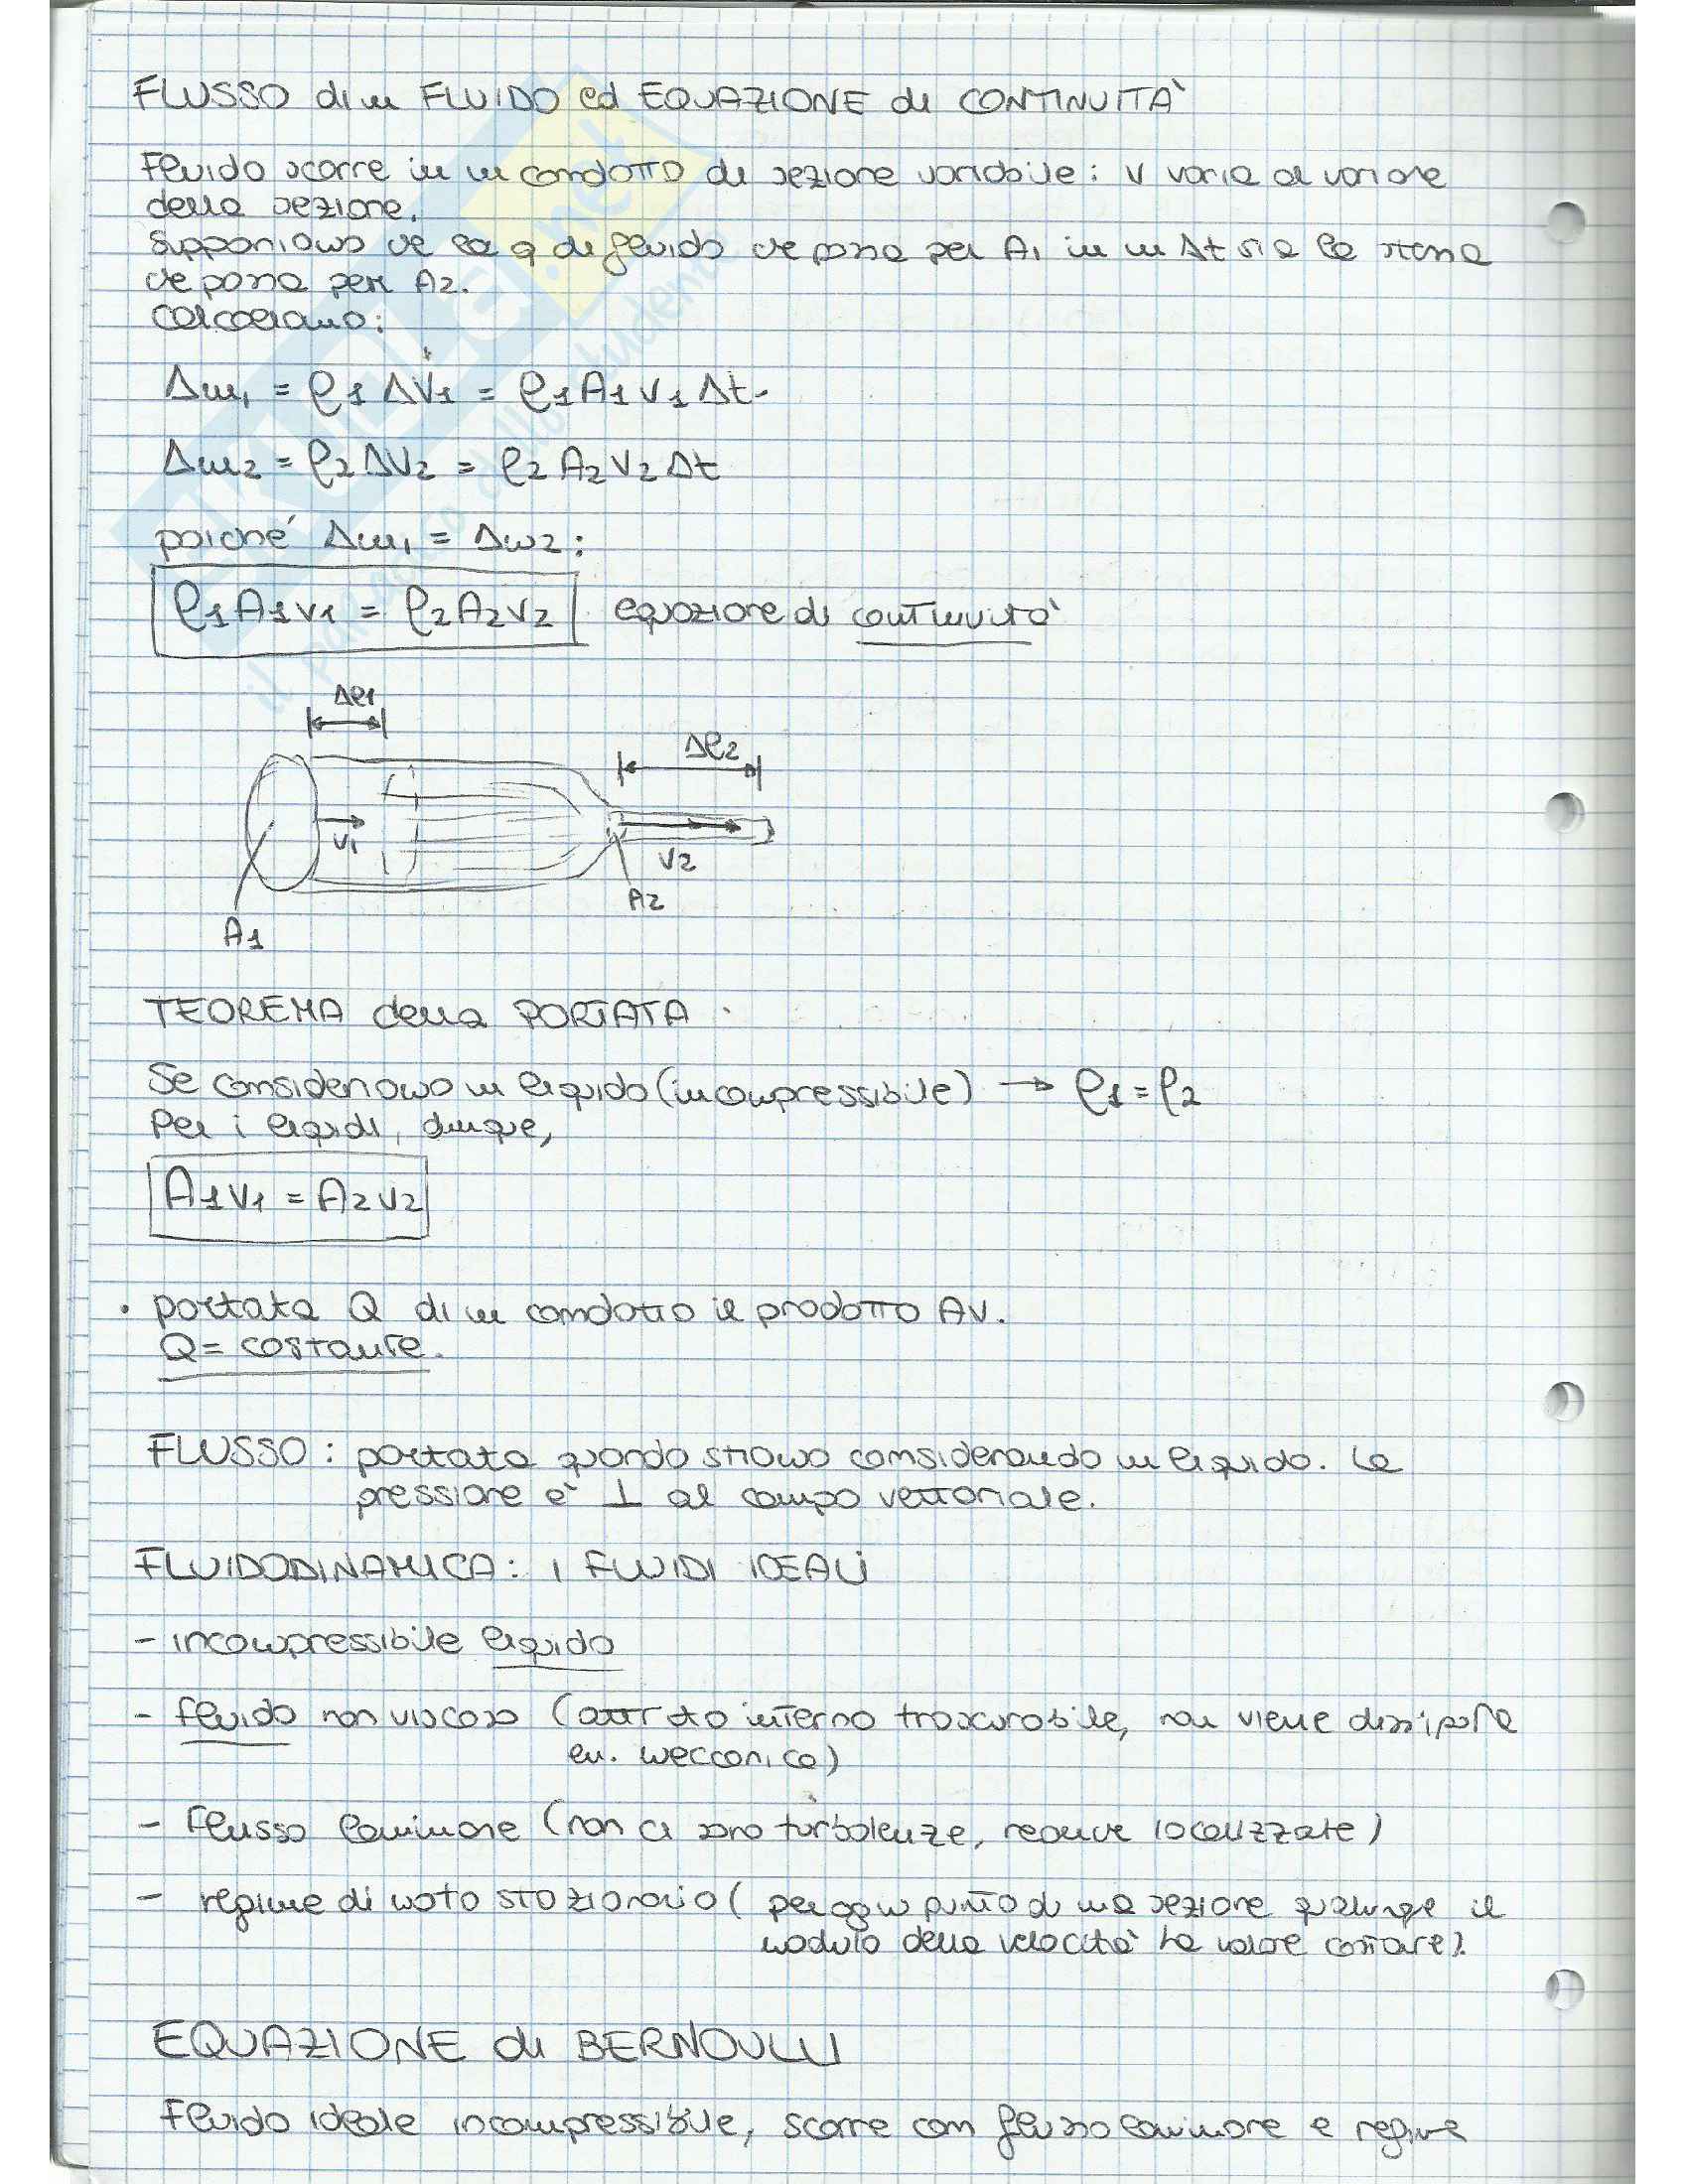 FLUSSO di un FLUIDO ed EQUAZIONE di CONTINUITÀ
Fluido scorre in un condotto di sezione variabile: v varia al variare
della sezione.
Supponiamo che la q di fluido che passa per A1 in un Δt sia la stessa
che passa per A2.
Calcoliamo:
Δm1 = ρ1 ΔV1 = ρ1A1v1Δt
Δm2 = ρ2ΔV2 = ρ2A2v2Δt
poiché Δm1 = Δm2:
ρ1A1v1 = ρ2A2v2 equazione di continuità
Δl1
Δl2
v1
v2
A2
A1
TEOREMA della PORTATA
Se consideriamo un liquido (incompressibile) → ρ1 = ρ2
Per i liquidi, dunque,
A1v1 = A2v2
• portata Q di un condotto il prodotto Av.
Q = costante.
FLUSSO: portata quando stiamo considerando un liquido. La
pressione è ⊥ al campo vettoriale.
FLUIDODINAMICA: i FLUIDI IDEALI
- incompressibile liquido
- fluido non viscoso (attrito interno trascurabile, non viene dissipata
en. meccanica)
- flusso laminare (non ci sono turbolenze, localizzate)
- regime di moto stazionario (per ogni punto di una sezione qualunque il
modulo della velocità ha valore costante).
EQUAZIONE di BERNOULLI
Fluido ideale incompressibile, scorre con flusso laminare e regime